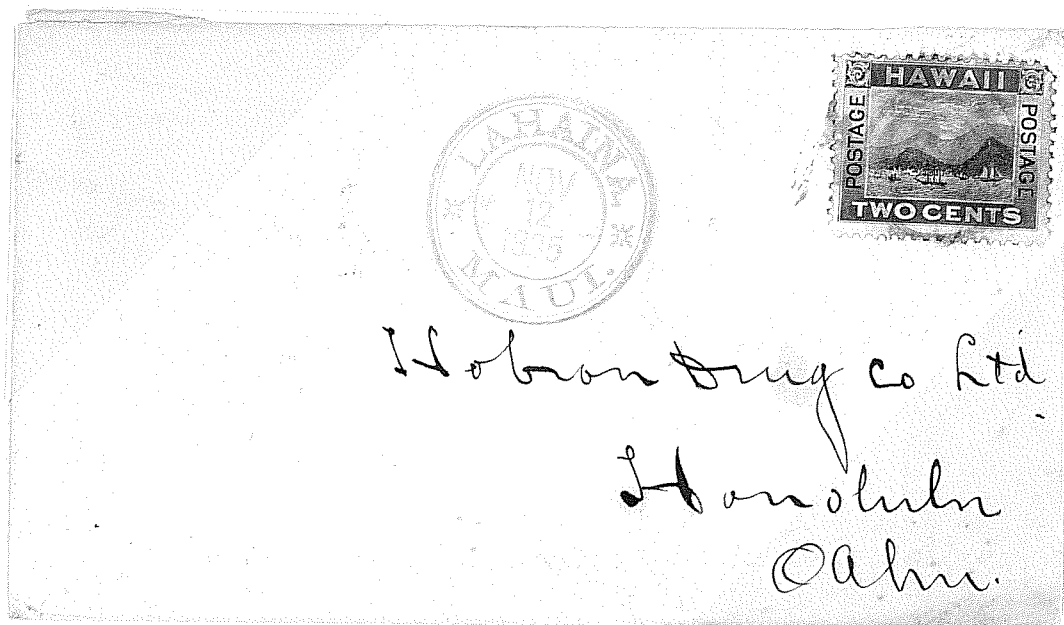 HAWAII
POSTAGE
POSTAGE
TWO CENTS
LAHAINA
NOV
12
MAUI.
Hobron Drug Co Ltd
Honolulu
Oahu.